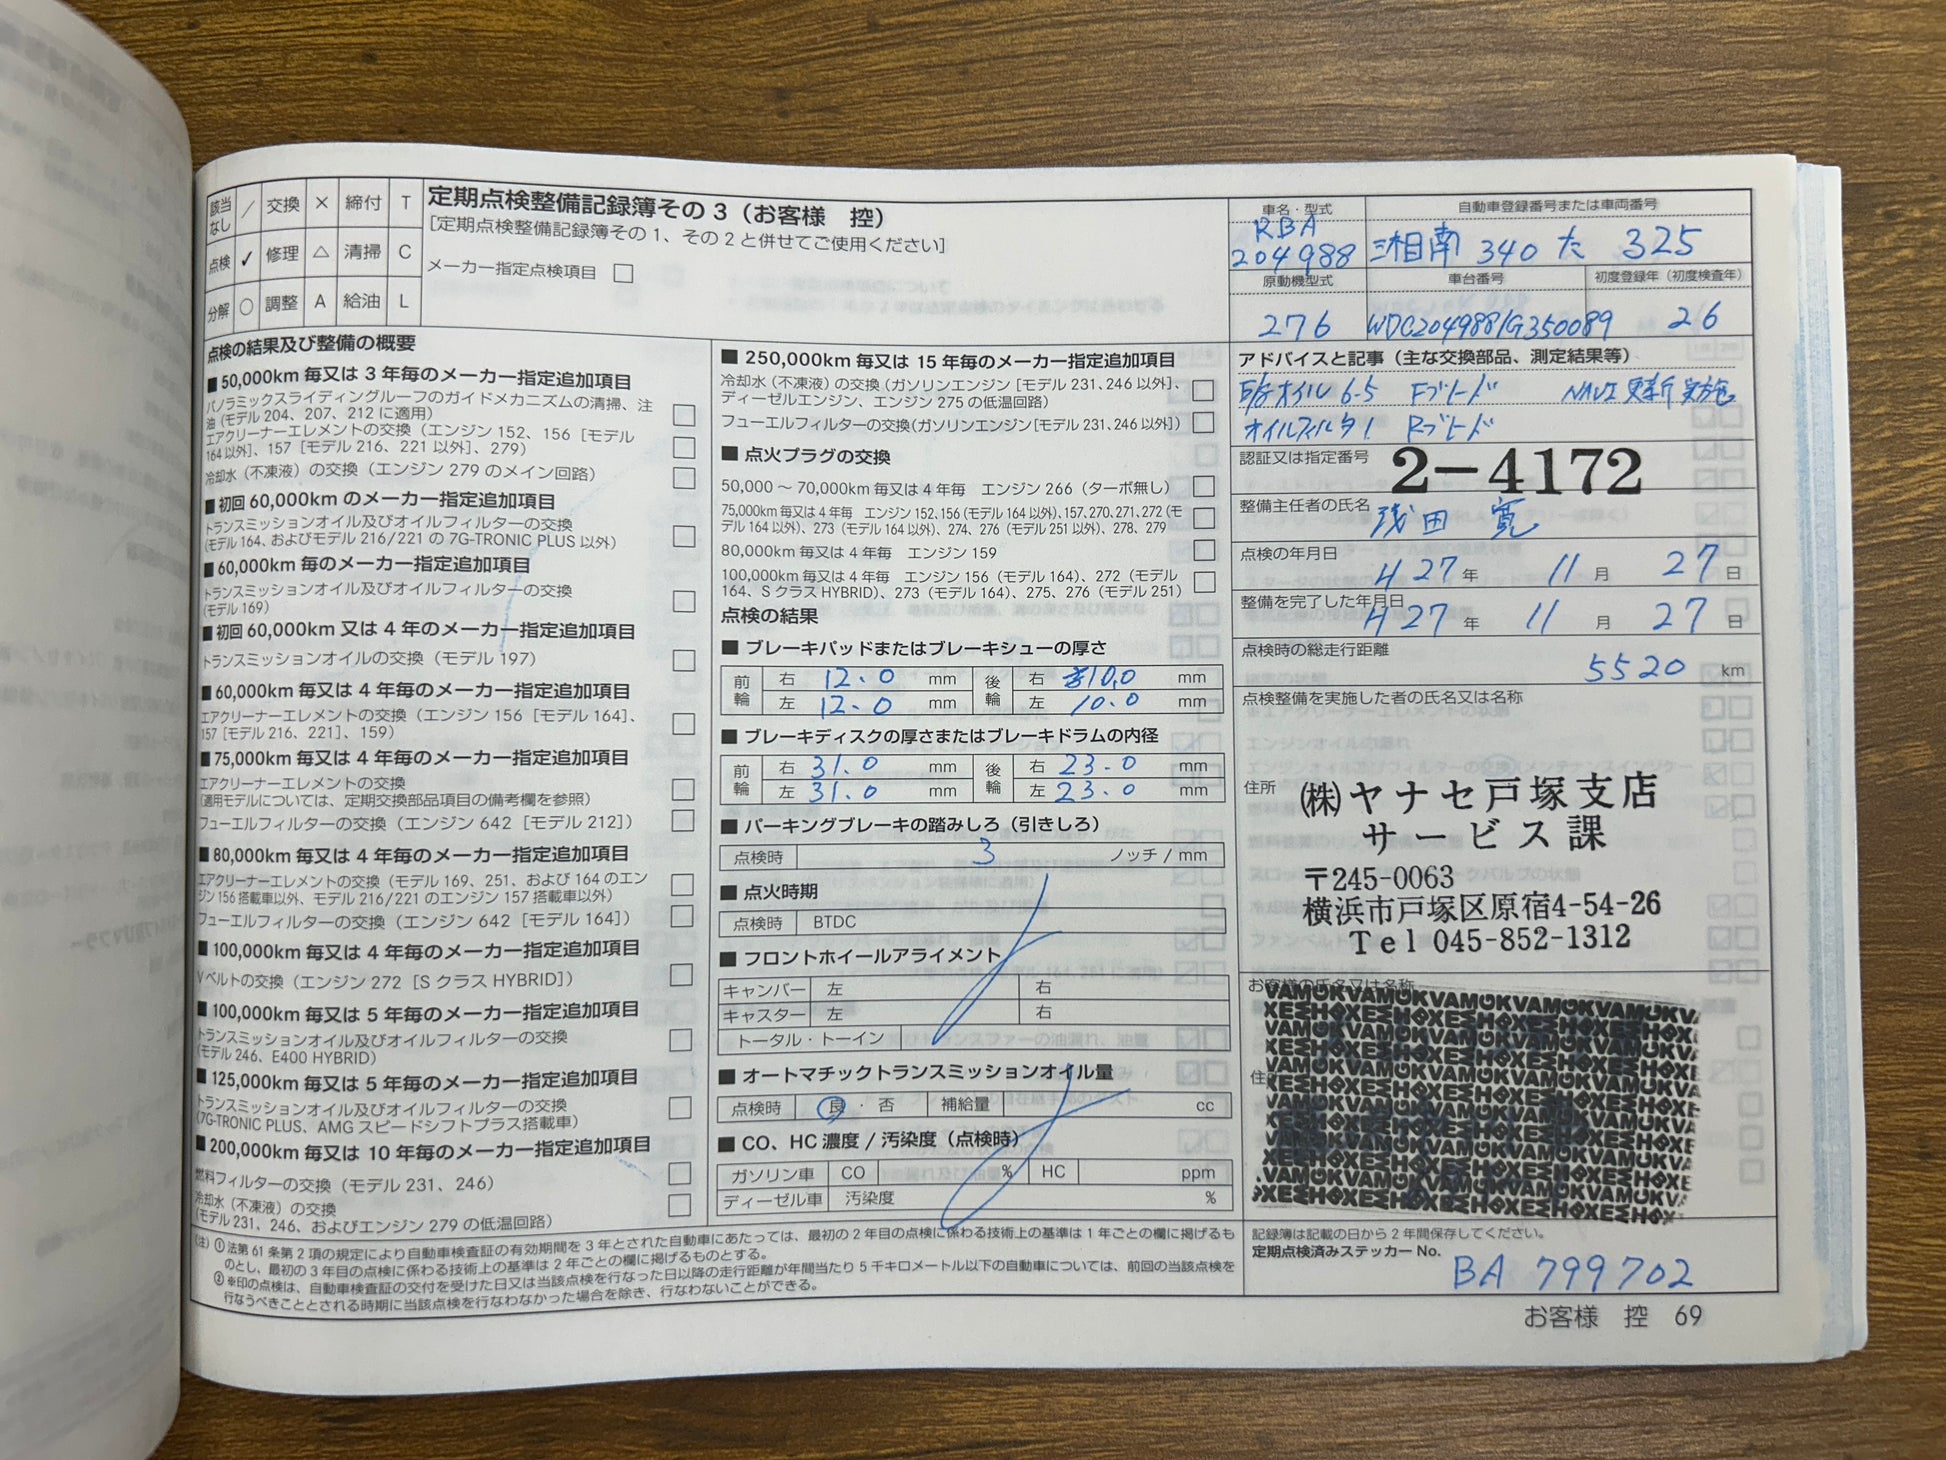 該当なし / 交換 × 締付 T
点検 ✓ 修理 △ 清掃 C
分解 ○ 調整 A 給油 L
定期点検整備記録簿その3（お客様　控）
[定期点検整備記録簿その1、その2と併せてご使用ください]
メーカー指定点検項目 □
車名・型式
RBA
204988
自動車登録番号または車両番号
湘南 340 た 325
原動機型式
276
車台番号
WDC2049881G350089
初度登録年（初度検査年）
26
点検の結果及び整備の概要
■ 50,000km 毎又は 3 年毎のメーカー指定追加項目
パノラミックスライディングルーフのガイドメカニズムの清掃、注
油（モデル 204、207、212 に適用） □
エアクリーナーエレメントの交換（エンジン 152、156［モデル
164 以外］、157［モデル 216、221 以外］、279） □
冷却水（不凍液）の交換（エンジン 279 のメイン回路） □
■ 初回 60,000km のメーカー指定追加項目
トランスミッションオイル及びオイルフィルターの交換
（モデル 164、およびモデル 216/221 の 7G-TRONIC PLUS 以外） □
■ 60,000km 毎のメーカー指定追加項目
トランスミッションオイル及びオイルフィルターの交換
（モデル 169） □
■ 初回 60,000km 又は 4 年のメーカー指定追加項目
トランスミッションオイルの交換（モデル 197） □
■ 60,000km 毎又は 4 年毎のメーカー指定追加項目
エアクリーナーエレメントの交換（エンジン 156［モデル 164］、
157［モデル 216、221］、159） □
■ 75,000km 毎又は 4 年毎のメーカー指定追加項目
エアクリーナーエレメントの交換
（適用モデルについては、定期交換部品項目の備考欄を参照） □
フューエルフィルターの交換（エンジン 642［モデル 212］） □
■ 80,000km 毎又は 4 年毎のメーカー指定追加項目
エアクリーナーエレメントの交換（モデル 169、251、および 164 のエン
ジン 156 搭載車以外、モデル 216/221 のエンジン 157 搭載車以外） □
フューエルフィルターの交換（エンジン 642［モデル 164］） □
■ 100,000km 毎又は 4 年毎のメーカー指定追加項目
V ベルトの交換（エンジン 272［S クラス HYBRID］） □
■ 100,000km 毎又は 5 年毎のメーカー指定追加項目
トランスミッションオイル及びオイルフィルターの交換
（モデル 246、E400 HYBRID） □
■ 125,000km 毎又は 5 年毎のメーカー指定追加項目
トランスミッションオイル及びオイルフィルターの交換
（7G-TRONIC PLUS、AMG スピードシフトプラス搭載車） □
■ 200,000km 毎又は 10 年毎のメーカー指定追加項目
燃料フィルターの交換（モデル 231、246） □
冷却水（不凍液）の交換
（モデル 231、246、およびエンジン 279 の低温回路） □
■ 250,000km 毎又は 15 年毎のメーカー指定追加項目
冷却水（不凍液）の交換（ガソリンエンジン［モデル 231、246 以外］、
ディーゼルエンジン、エンジン 275 の低温回路） □
フューエルフィルターの交換（ガソリンエンジン［モデル 231、246 以外］） □
■ 点火プラグの交換
50,000 〜 70,000km 毎又は 4 年毎　エンジン 266（ターボ無し） □
75,000km 毎又は 4 年毎　エンジン 152、156（モデル 164 以外）、157、270、271、272（モ
デル 164 以外）、273（モデル 164 以外）、274、276（モデル 251 以外）、278、279 □
80,000km 毎又は 4 年毎　エンジン 159 □
100,000km 毎又は 4 年毎　エンジン 156（モデル 164）、272（モデル
164、S クラス HYBRID）、273（モデル 164）、275、276（モデル 251） □
点検の結果
■ ブレーキパッドまたはブレーキシューの厚さ
前輪 右 12.0 mm 後輪 右 10.0 mm
左 12.0 mm 左 10.0 mm
■ ブレーキディスクの厚さまたはブレーキドラムの内径
前輪 右 31.0 mm 後輪 右 23.0 mm
左 31.0 mm 左 23.0 mm
■ パーキングブレーキの踏みしろ（引きしろ）
点検時 3 ノッチ / mm
■ 点火時期
点検時 BTDC
■ フロントホイールアライメント
キャンバー 左 右
キャスター 左 右
トータル・トーイン
■ オートマチックトランスミッションオイル量
点検時 良 ・ 否 補給量 cc
■ CO、HC 濃度 / 汚染度（点検時）
ガソリン車 CO % HC ppm
ディーゼル車 汚染度 %
アドバイスと記事（主な交換部品、測定結果等）
オイル 6.5 Fブレード NAVI 更新 実施
オイルフィルタ 1 Rブレード
認証又は指定番号 2-4172
整備主任者の氏名 浅田 寛
点検の年月日
H 27 年 11 月 27 日
整備を完了した年月日
H 27 年 11 月 27 日
点検時の総走行距離
5520 km
点検整備を実施した者の氏名又は名称
住所
㈱ヤナセ戸塚支店
サービス課
〒245-0063
横浜市戸塚区原宿4-54-26
Tel 045-852-1312
お客様の氏名又は名称
記録簿は記載の日から 2 年間保存してください。
定期点検済みステッカー No.
BA 799702
（注）① 法第 61 条第 2 項の規定により自動車検査証の有効期間を 3 年とされた自動車にあたっては、最初の 2 年目の点検に係わる技術上の基準は 1 年ごとの欄に掲げるも
のとし、最初の 3 年目の点検に係わる技術上の基準は 2 年ごとの欄に掲げるものとする。
② ※印の点検は、自動車検査証の交付を受けた日又は当該点検を行なった日以降の走行距離が年間当たり 5 千キロメートル以下の自動車については、前回の当該点検を
行なうべきこととされる時期に当該点検を行なわなかった場合を除き、行なわないことができる。
お客様　控　69